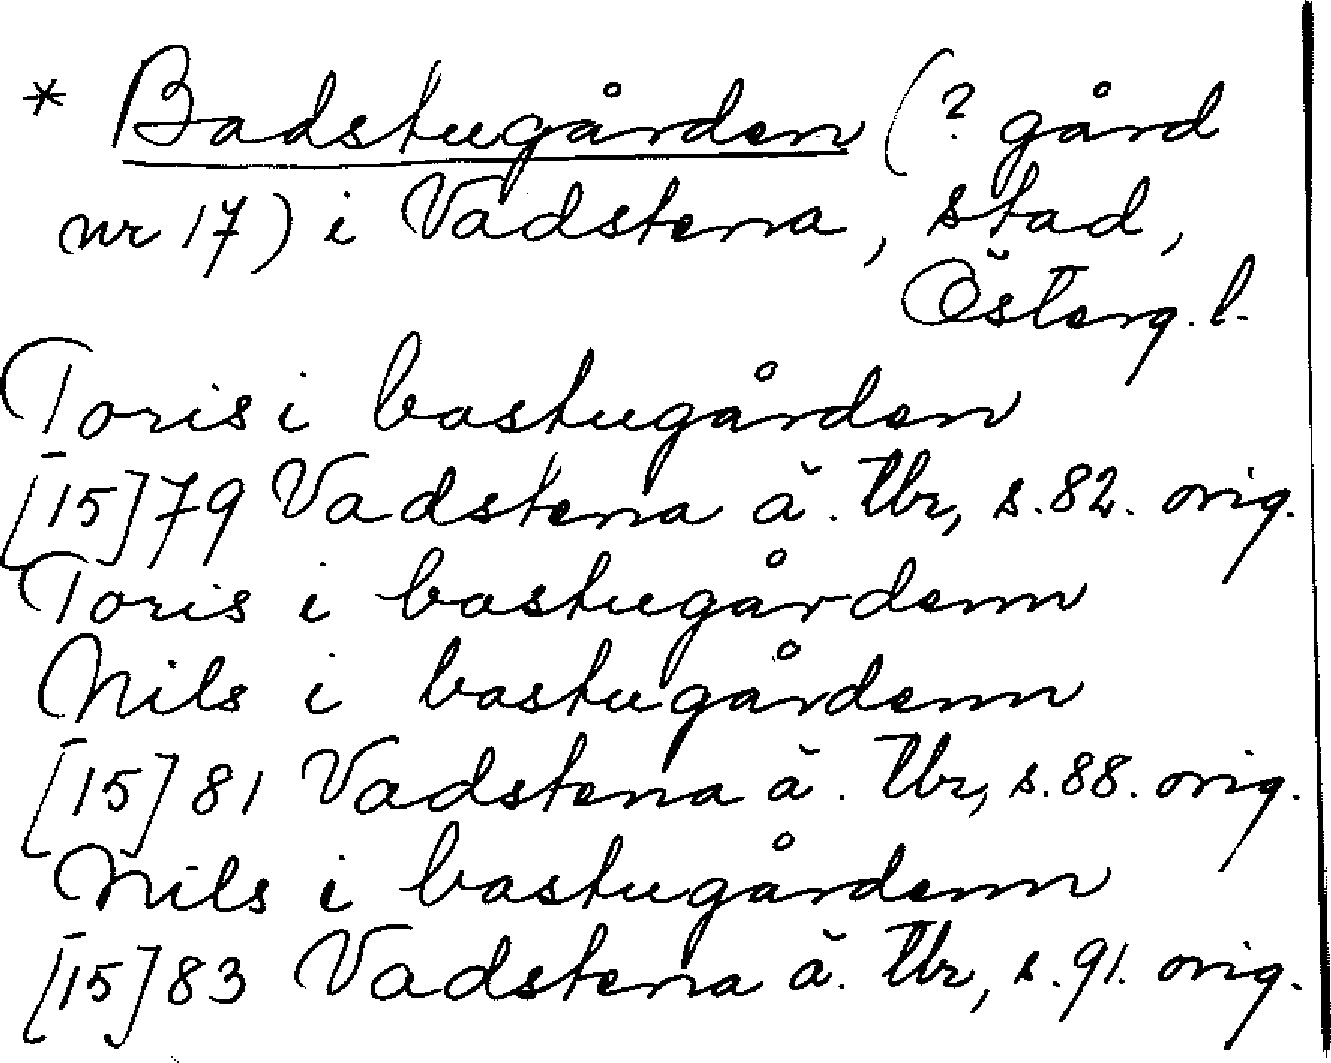 * Badstugården (? gård
nr 17) i Vadstena, stad,
Österg. l.
Toris i bastugården
[15]79 Vadstena ä. Tbr, s. 82. orig.
Toris i bastugårdenn
Nils i bastugårdenn
[15]81 Vadstena ä. Tbr, s. 88. orig.
Nils i bastugårdenn
[15]83 Vadstena ä. Tbr, s. 91. orig.